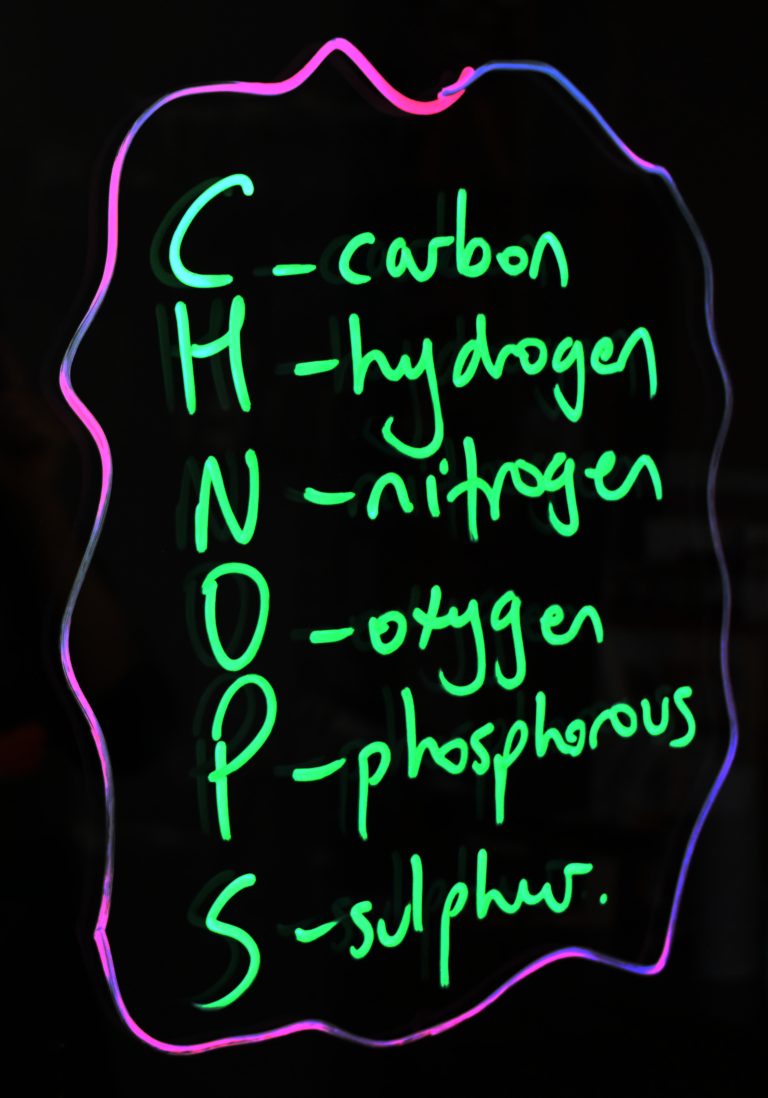 C - carbon
H - hydrogen
N - nitrogen
O - oxygen
P - phosphorous
S - sulphur.